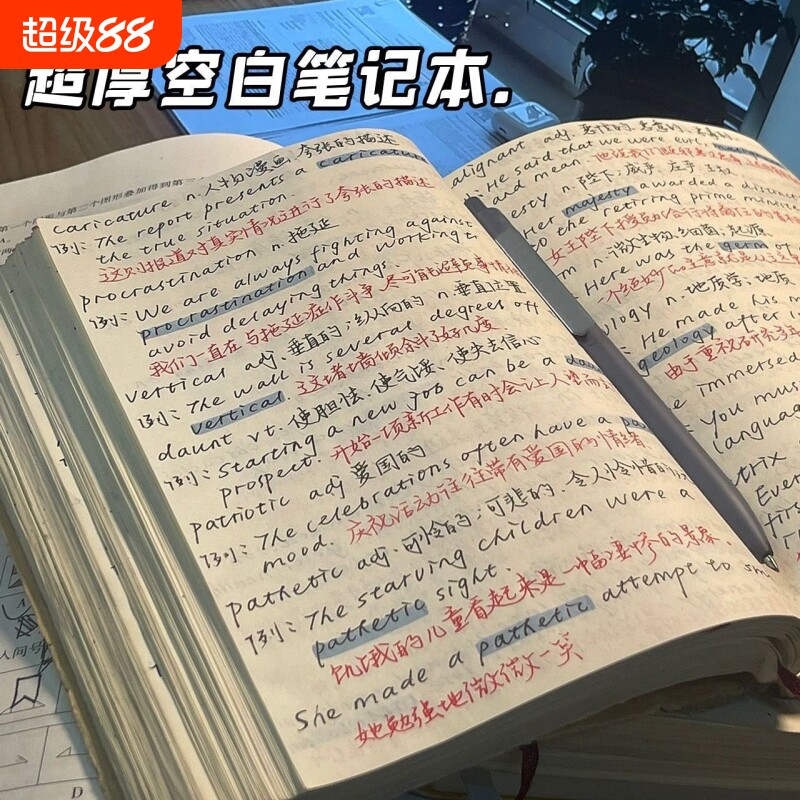 超级88
超厚空白笔记本.
caricature n.人物漫画,夸张的描述
例: The report presents a caricature
the true situation.
这则报道对真实情况进行了夸张的描述
procrastination n.拖延
例: We are always fighting against
procrastination and working to
avoid delaying things.
我们一直在与拖延症作斗争
vertical adj.垂直的;纵向的 n.垂直位置
例: The wall is several degrees off
vertical. 这堵墙倾斜了好几度
daunt vt.使胆怯,使气馁,使失去信心
例: Starting a new job can be a
prospect. 开始一项新工作有时会让人望而
patriotic adj 爱国的
例: The celebrations often have a
mood. 庆祝活动往往带有爱国的情绪
pathetic adj.可怜的;可悲的,令人怜惜的
例: The starving children were a
pathetic sight.
饥饿的儿童看起来是一幅凄惨的景象.
She made a pathetic attempt to
她勉强地微微一笑
alignant adj.
: He said that we were evil
and mean.
esty n.陛下,威严,庄予,王权
Her majesty awarded a
to the retiring prime
m n.微生物,细菌;起源
: Here was the germ of
ology n.地质学;地质
: He made his
geology after
由于重视
immersed
You must
language
trix
Ever
first
D